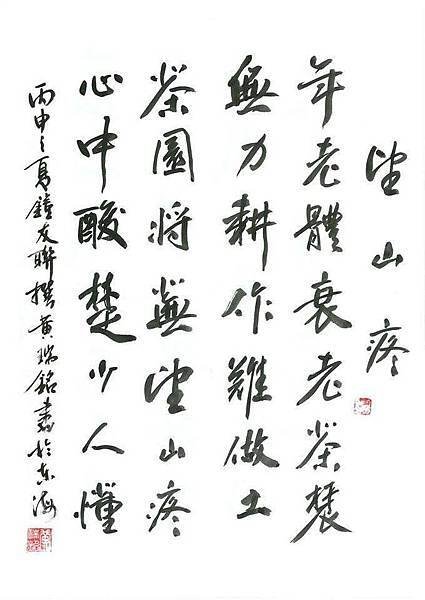 望山疼
年老體衰老茶農
無力耕作難做工
茶園將蕪望山疼
心中酸楚少人懂
丙申之夏鐘友聯撰黃瑞銘書於東海